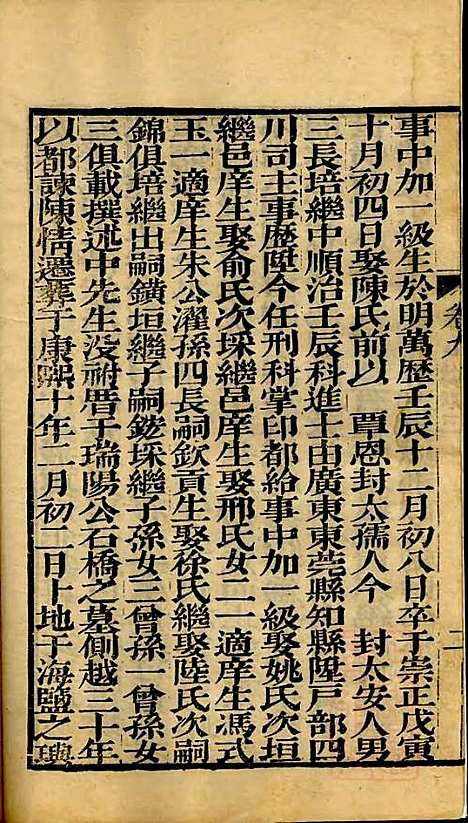 事中加一級生於明萬歷壬辰十二月初八日卒于崇正戊寅
十月初四日娶陳氏前以　覃恩封太孺人今　封太安人男
三長培繼中順治壬辰科進士由廣東東莞縣知縣陞戶部四
川司主事歷陞今任刑科掌印都給事中加一級娶姚氏次垣
繼邑庠生娶俞氏次埰繼邑庠生娶邢氏女二一適庠生馮式
玉一適庠生朱公濯孫四長嗣欽貢生娶徐氏繼娶陸氏次嗣
錦俱培繼出嗣鐄垣繼子嗣錺埰繼子孫女三曾孫一曾孫女
三俱載撰述中先生没祔厝于瑞陽公石橋之墓側越三十年
以都諫陳情遷葬于康熙十年二月初二日卜地于海鹽之璵
卷九
二